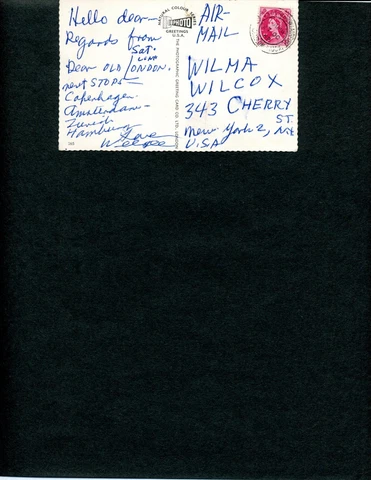 Hello dear—
Regards from
Sat.
Dear OLD LONDON.
next STOPS—
Copenhagen
Amsterdam—
Zurich
Hamburg
Love
NATURAL COLOUR
PHOTO
GREETINGS
U.S.A.
THE PHOTOGRAPHIC GREETING CARD CO. LTD., LONDON
AIR-
MAIL
WILMA
WILCOX
343 CHERRY
ST.
New York 2, NY
USA